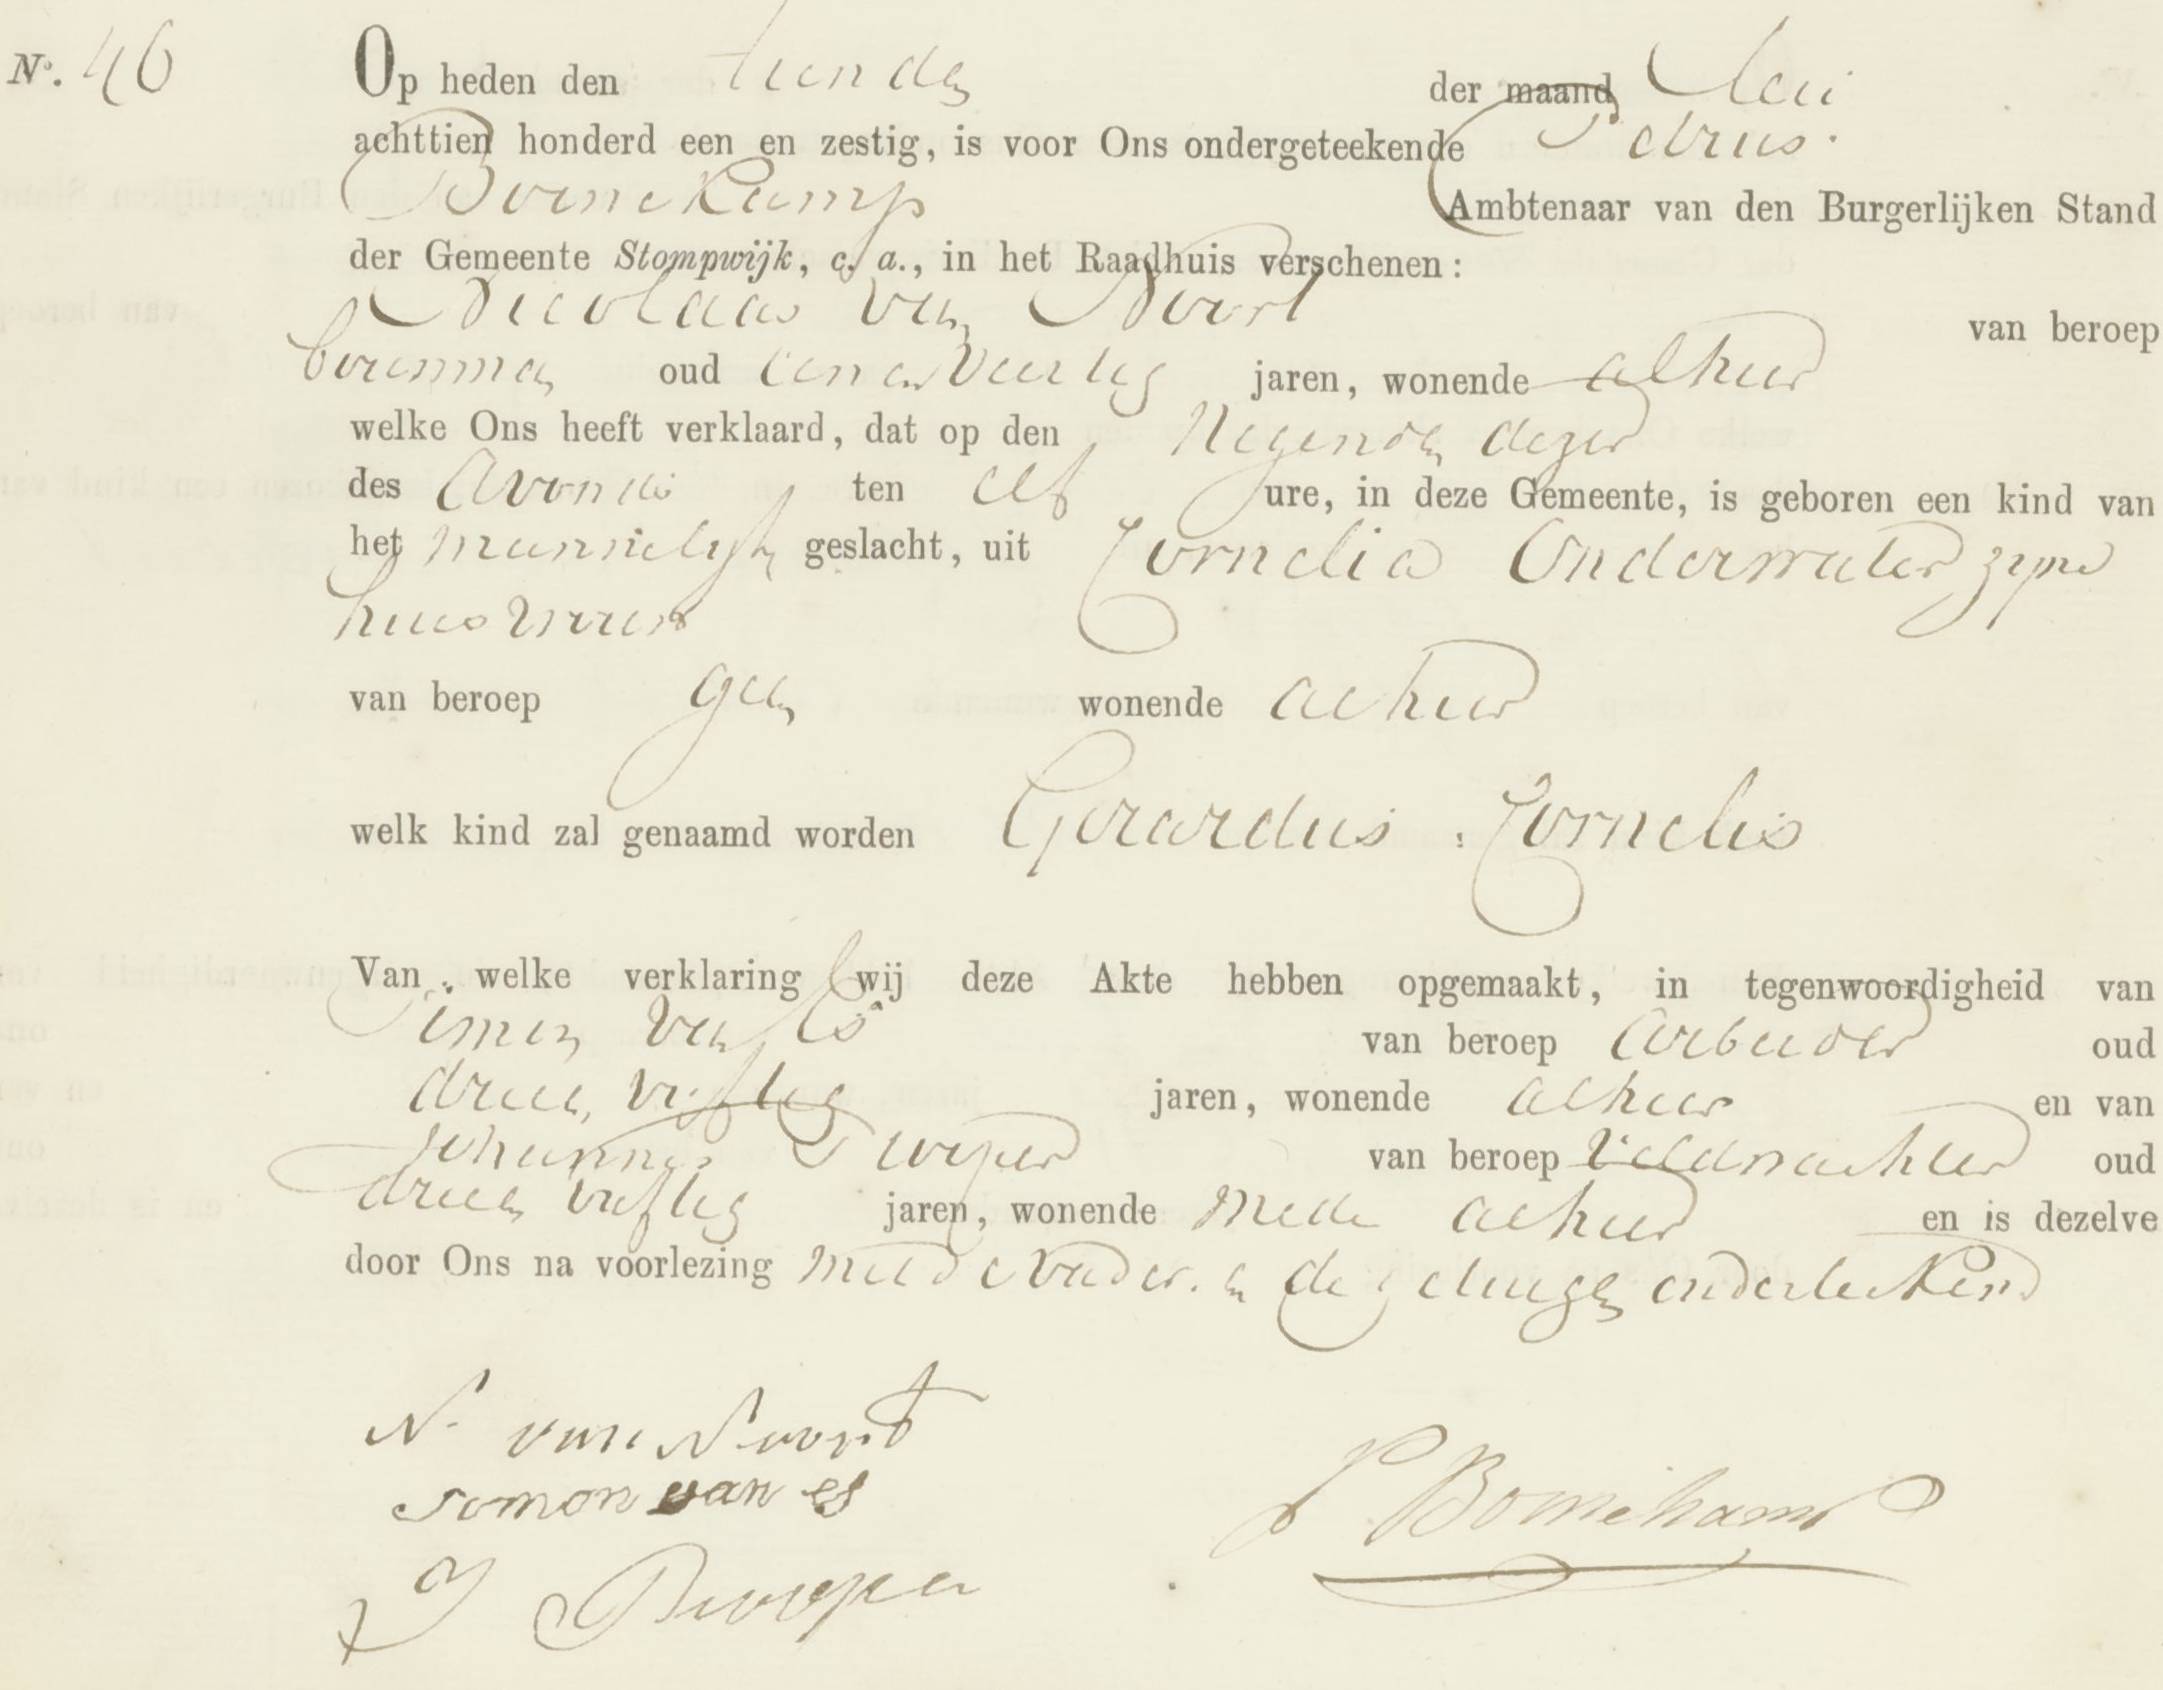 N°. 46
Op heden den tienden der maand Mei
achttien honderd een en zestig, is voor Ons ondergeteekende Petrus
Bomekamp Ambtenaar van den Burgerlijken Stand
der Gemeente Stompwijk, c. a., in het Raadhuis verschenen:
Nicolaas van Noort van beroep
bouwman oud een en veertig jaren, wonende alhier
welke Ons heeft verklaard, dat op den Negenden dezer
des Avonds ten elf ure, in deze Gemeente, is geboren een kind van
het mannelijk geslacht, uit Cornelia Onderwater zijne
huisvrouw
van beroep geen wonende alhier
welk kind zal genaamd worden Gerardus Cornelis
Van welke verklaring wij deze Akte hebben opgemaakt, in tegenwoordigheid van
Simon van Es van beroep Arbeider oud
drie en vijftig jaren, wonende alhier en van
Johannes van beroep Veldwachter oud
drie en vijftig jaren, wonende mede alhier en is dezelve
door Ons na voorlezing met de vader en de getuigen onderteekend
N. van Noort
Simon van es
P Bomekamp
J